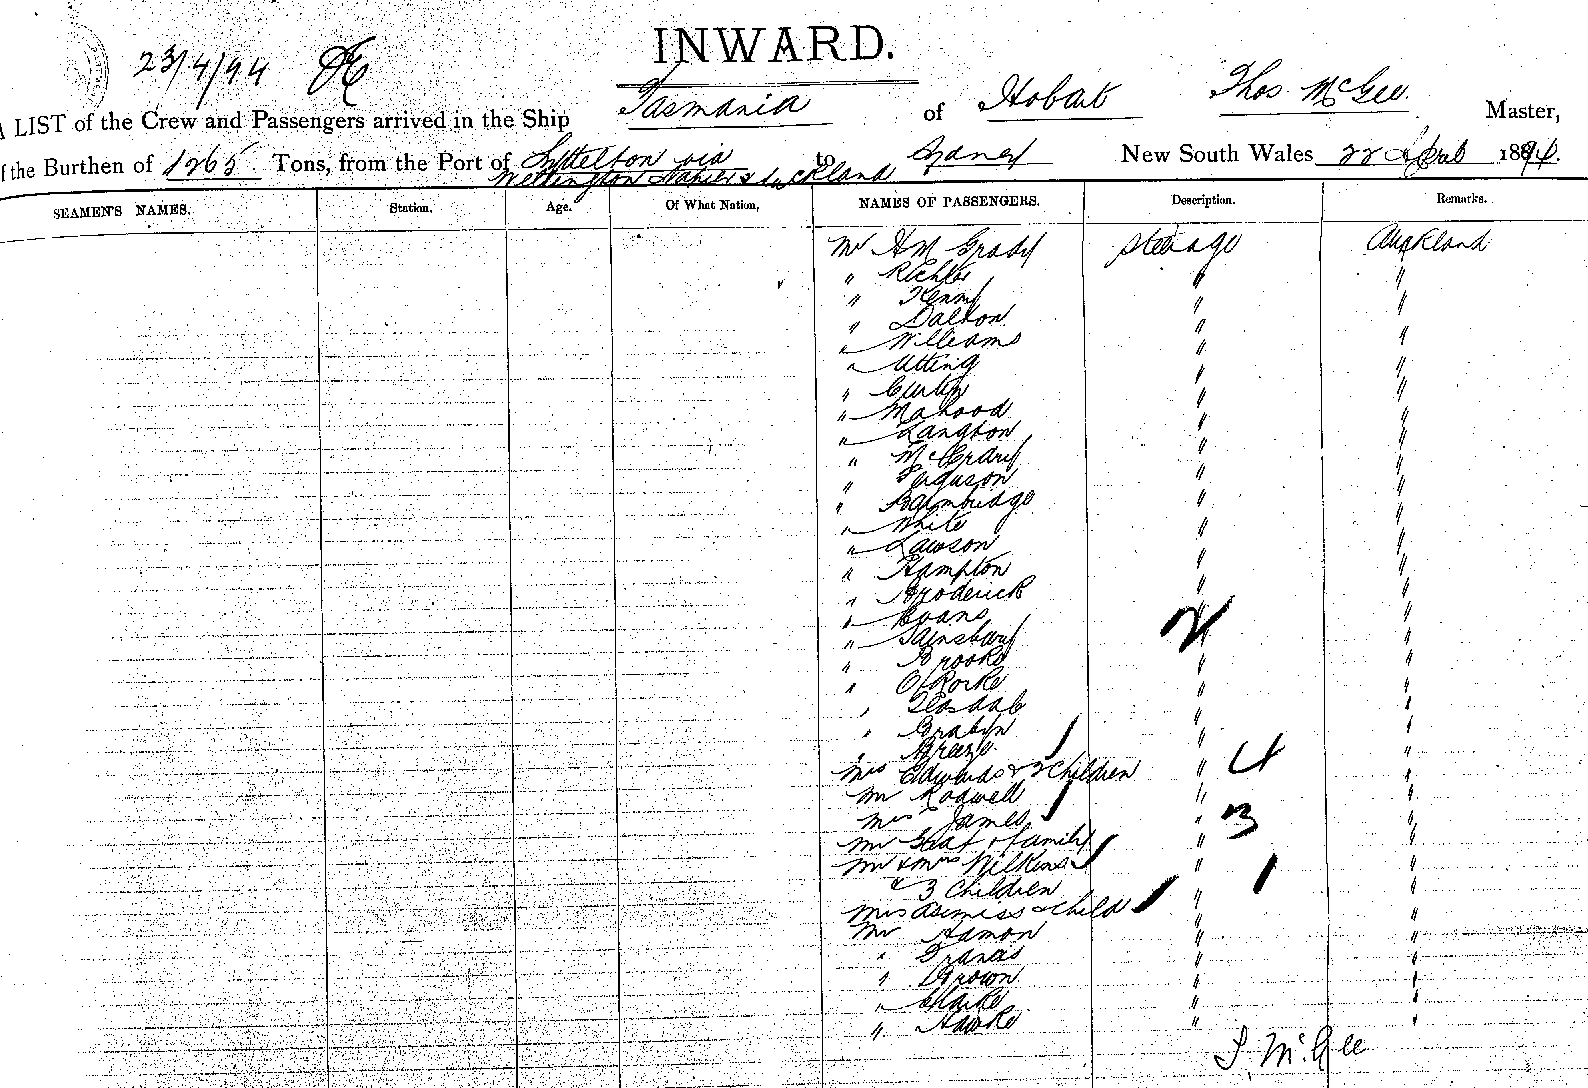 INWARD.
23/4/94
A LIST of the Crew and Passengers arrived in the Ship Tasmania of Hobart Thos McGee Master,
of the Burthen of 1265 Tons, from the Port of Lyttelton via to Sydney New South Wales 22 April 1894.
Wellington Napier & Auckland
SEAMEN'S NAMES. Station. Age. Of What Nation, NAMES OF PASSENGERS. Description. Remarks.
Mr H M Grady Steerage Auckland
" " "
" Kenny " "
" Dalton " "
" Williams " "
" Utting " "
" Curtin " "
" Mahood " "
" Langton " "
" McGrary " "
" Ferguson " "
" Bainbridge " "
" White " "
" Lawson " "
" Hampton " "
" Broderick " "
" Evans " "
" Sainsbury " "
" Brooke " "
" O'Rorke " "
" Teasdale " "
" Brabyn " "
" Breeze " "
Mrs Edwards & 2 Children " 4 "
Mr Rodwell " "
Mrs James " 3 "
Mr & family " "
Mr & Mrs Wilkins " "
& 3 Children 1
Mrs & Child " "
Mr Hamon " "
" Francis " "
" Brown " "
" Clarke " "
" Hawke " "
T. McGee